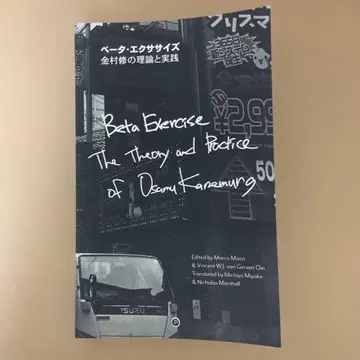 ベータ・エクササイズ
金村修の理論と実践
プリズマ
¥2,99
50
Beta Exercise
The Theory and Practice
of Osamu Kanemura
Edited by Marco Mazzi
& Vincent W.J. van Gerven Oei
Translated by Michiyo Miyake
& Nicholas Marshall
ISUZU
P